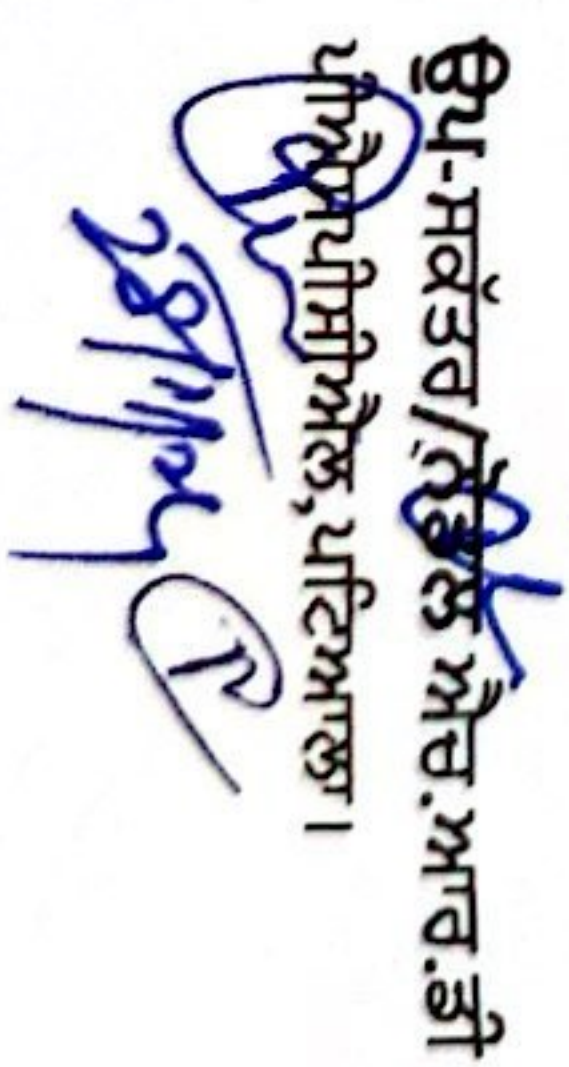 ਉਪ-ਸਕੱਤਰ/ਨੋਡਲ ਐਚ.ਆਰ.ਡੀ
ਪੀਐਸਪੀਸੀਐਲ, ਪਟਿਆਲਾ।
28/11/2024